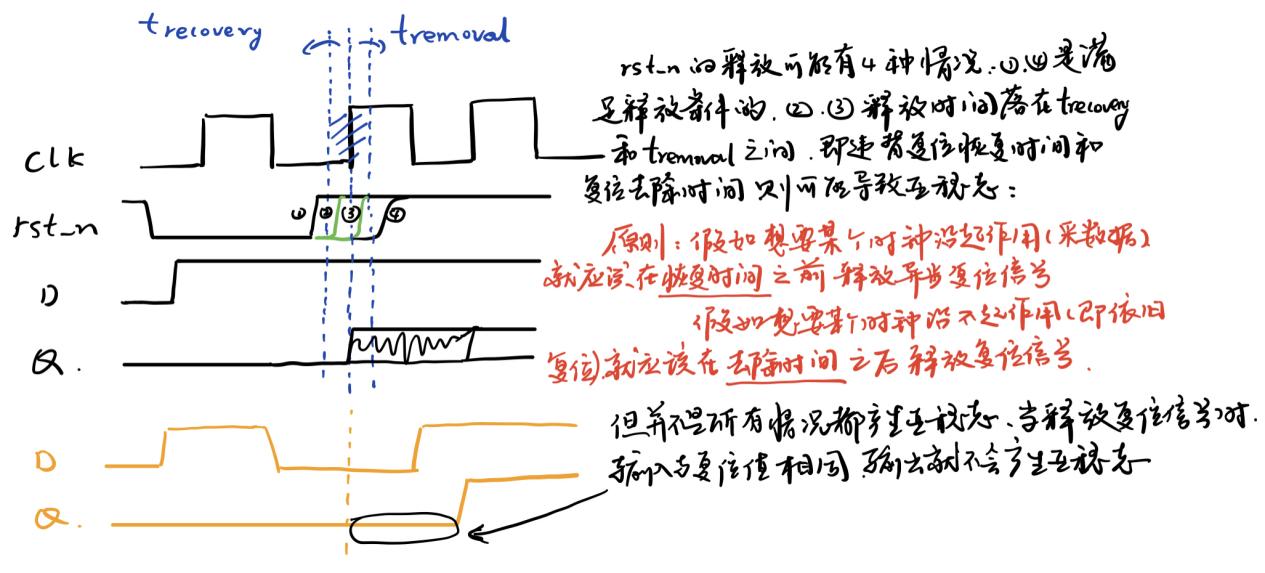 trecovery tremoval
rst_n的释放可能有4种情况.①.④是满
足释放条件的.②.③释放时间落在trecovery
clk
和tremoval之间.即违背复位恢复时间和
复位去除时间则可能导致亚稳态:
rst_n ① ② ③ ④
原则:假如想要某个时钟沿起作用(采数据)
就应该在恢复时间之前释放异步复位信号
D
假如想要某个时钟沿不起作用(即依旧
Q.
复位)就应该在去除时间之后释放复位信号.
但并不是所有情况都产生亚稳态、当释放复位信号时.
D
输入与复位值相同.输出就不会产生亚稳态
Q.